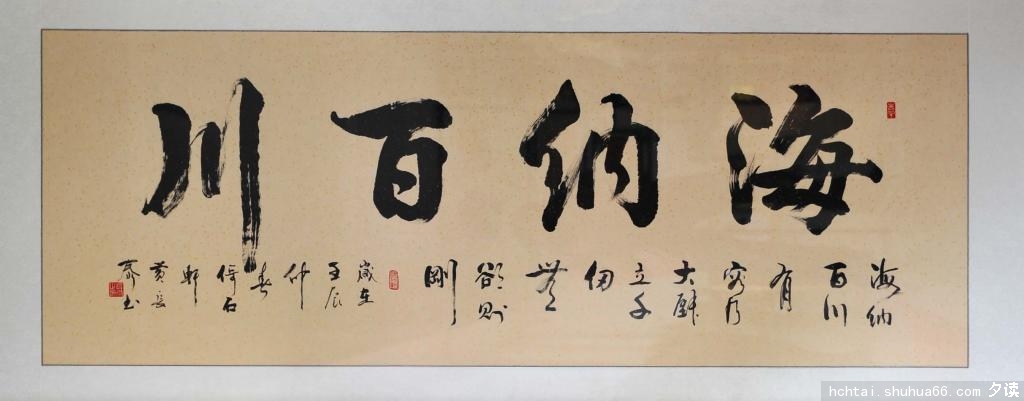 海納百川
海納
百川
有
容乃
大壁
立千
仞
無
欲則
剛
歲在
壬辰
仲
春
倚石
軒
黄長
泰书
hchtai.shuhua66.com 夕读